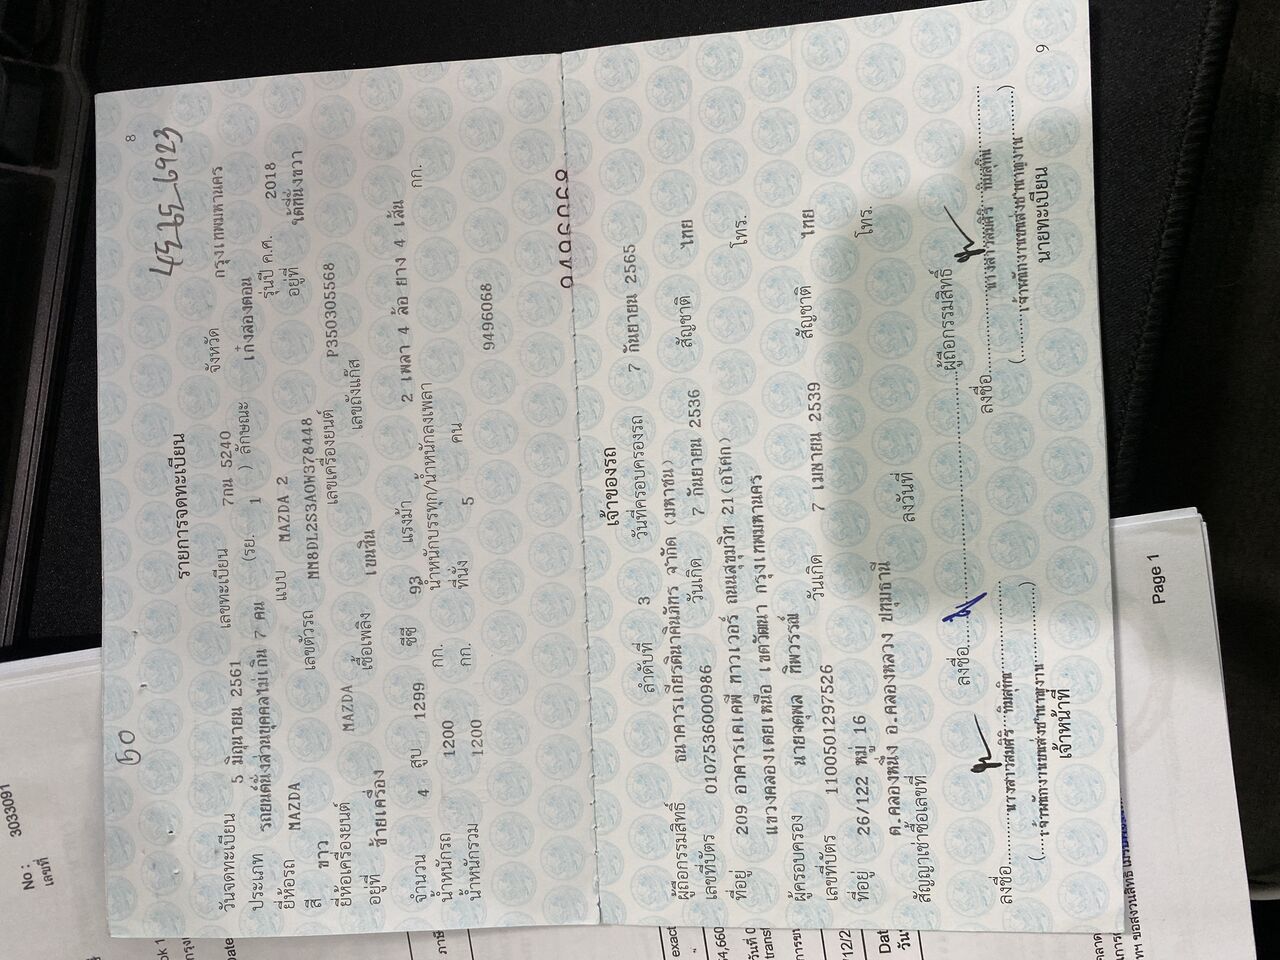 8
50
45-65-6923
รายการจดทะเบียน
วันจดทะเบียน 5 มิถุนายน 2561 เลขทะเบียน 7กน 5240 จังหวัด กรุงเทพมหานคร
ประเภท รถยนต์นั่งส่วนบุคคลไม่เกิน 7 คน (รย. 1 ) ลักษณะ เก๋งสองตอน
ยี่ห้อรถ MAZDA แบบ MAZDA 2 รุ่นปี ค.ศ. 2018
สี ขาว เลขตัวรถ MM8DL2S3A0W378448 อยู่ที่ ใต้ที่นั่งขวา
ยี่ห้อเครื่องยนต์ MAZDA เลขเครื่องยนต์ P350305568
อยู่ที่ ซ้ายเครื่อง เชื้อเพลิง เบนซิน เลขถังแก๊ส
จำนวน 4 สูบ 1299 ซีซี 93 แรงม้า 2 เพลา 4 ล้อ ยาง 4 เส้น
น้ำหนักรถ 1200 กก. น้ำหนักบรรทุก/น้ำหนักลงเพลา กก.
น้ำหนักรวม 1200 กก. ที่นั่ง 5 คน
9496068
9496068
เจ้าของรถ
ลำดับที่ 3 วันที่ครอบครองรถ 7 กันยายน 2565
ผู้ถือกรรมสิทธิ์ ธนาคารเกียรตินาคินภัทร จำกัด (มหาชน)
เลขที่บัตร 0107536000986 วันเกิด 7 กันยายน 2536 สัญชาติ ไทย
ที่อยู่ 209 อาคารเคเคพี ทาวเวอร์ ถนนสุขุมวิท 21(อโศก)
แขวงคลองเตยเหนือ เขตวัฒนา กรุงเทพมหานคร โทร.
ผู้ครอบครอง นายจตุพล ทิพวรรณ์
เลขที่บัตร 1100501297526 วันเกิด 7 เมษายน 2539 สัญชาติ ไทย
ที่อยู่ 26/122 หมู่ 16
ต.คลองหนึ่ง อ.คลองหลวง ปทุมธานี โทร.
สัญญาเช่าซื้อเลขที่ ลงวันที่
ลงชื่อ ผู้ถือกรรมสิทธิ์
ลงชื่อ นางสาวสมศิริ ลงชื่อ นางสาวสมศิริ
(เจ้าพนักงานขนส่งชำนาญงาน) (เจ้าพนักงานขนส่งชำนาญงาน)
เจ้าหน้าที่ นายทะเบียน
9
No :
เลขที่
3033091
Page 1